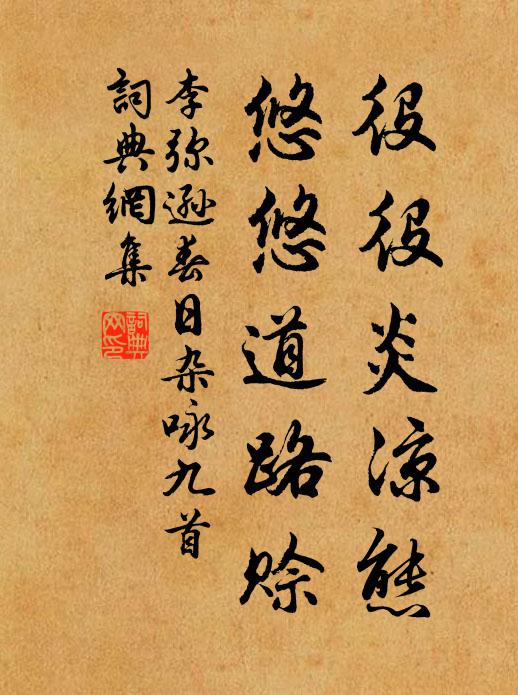 役役炎凉態
悠悠道路赊
李弥遜春日杂咏九首
詞典網集
詞典
网印